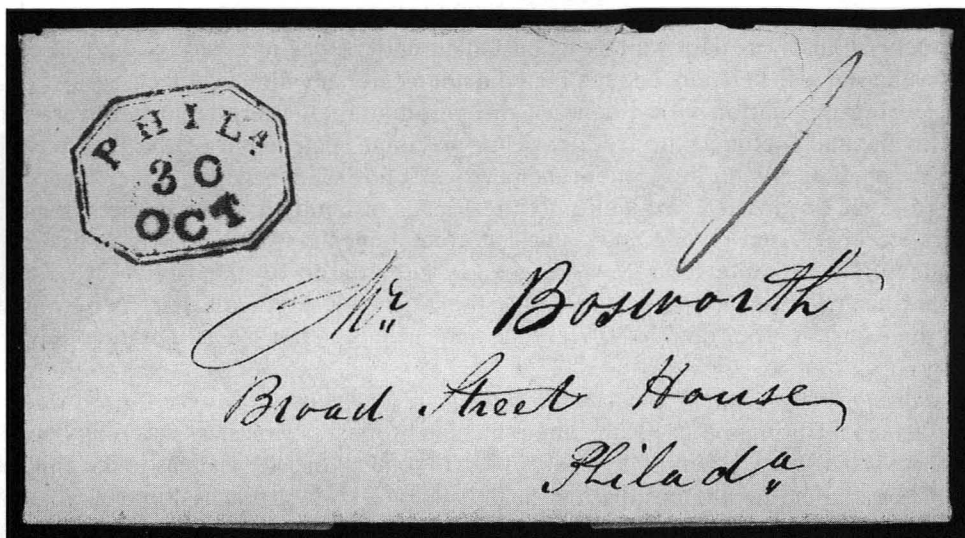 PHILA.
30
OCT
Mr. Bosworth
Broad Street House
Philada.